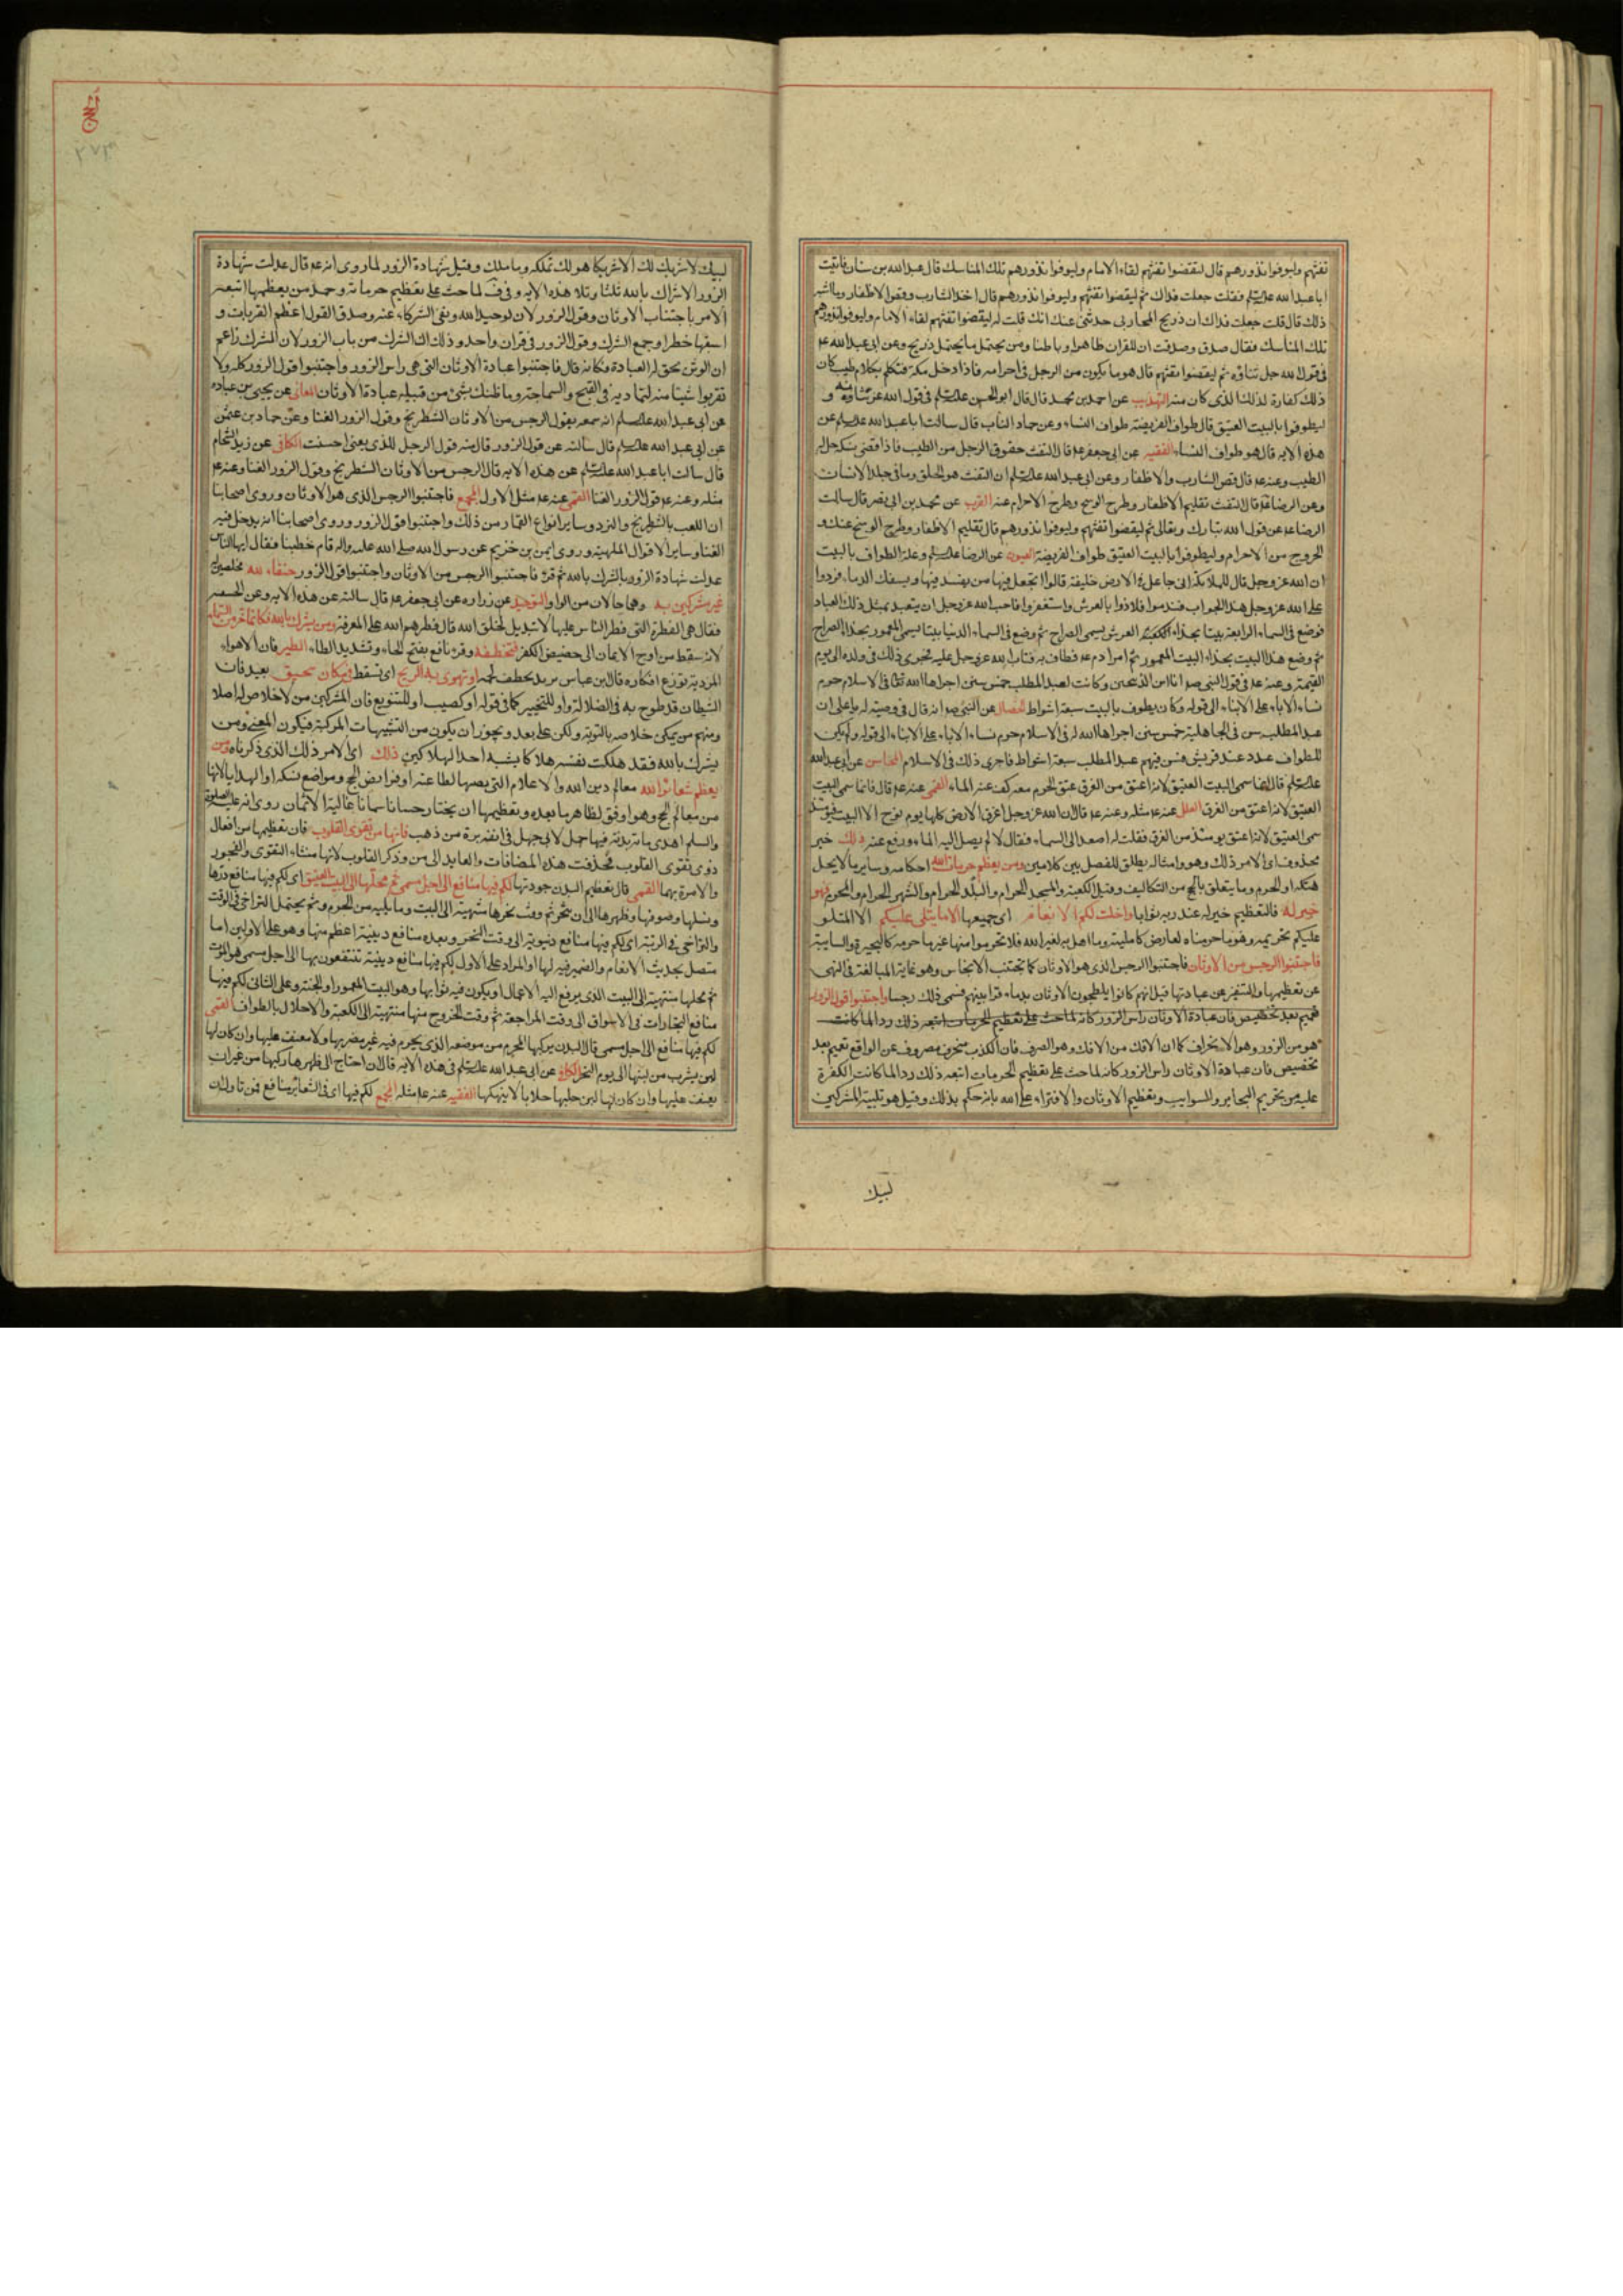 تفثهم وليوفوا نذورهم قال ليقضوا تفثهم لقاء الامام وليوفوا نذورهم تلك المناسك قال عبدالله بن سنان فاتيت
اباعبدالله علیه‌السلم فقلت جعلت فداك ثم ليقضوا تفثهم وليوفوا نذورهم قال اخذ الشارب وقص الاظفار وما اشبه
ذلك قال قلت جعلت فداك ان ذريح المحاربى حدثنى عنك انك قلت له ليقضوا تفثهم لقاء الامام وليوفوا نذورهم
تلك المناسك فقال صدق وصدقت ان للقران ظاهرا وباطنا ومن يحتمل ما يحتمل ذريح وعن ابى عبدالله عه
فى قول الله جل ثناؤه ثم ليقضوا تفثهم قال هو ما يكون من الرجل فى احرامه فاذا دخل مكة فتكلم بكلام طيب كان
ذلك كفارة لذلك الذى كان منه التهذيب عن احمد بن محمد قال قال ابوالحسن علیه‌السلم فى قول الله عز و
ليطوفوا بالبيت العتيق قال طواف الفريضة طواف النساء وعن حماد الناب قال سالت اباعبدالله علیه‌السلم عن
هذه الايه قال هو طواف النساء الفقيه عن ابى جعفر عه قال التفث حقوق الرجل من الطيب فاذا قضى نسكه حل له
الطيب وعنه عه قال قص الشارب والاظفار وعن ابى عبدالله علیه‌السلم ان التفث هو الحلق وما فى جلد الانسان
وعن الرضا عه قال التفث تقليم الاظفار وطرح الوسخ وطرح الاحرام عنه القرب عن محمد بن ابى نصر قال سالت
الرضا عه عن قول الله تبارك وتعالى ثم ليقضوا تفثهم وليوفوا نذورهم قال تقليم الاظفار وطرح الوسخ عنك و
الخروج من الاحرام وليطوفوا بالبيت العتيق طواف الفريضة العيون عن الرضا علیه‌السلم وعلة الطواف بالبيت
ان الله عزوجل قال للملائكة انى جاعل فى الارض خليفة قالوا اتجعل فيها من يفسد فيها ويسفك الدماء فردوا
على الله عزوجل هذا الجواب فندموا فلاذوا بالعرش واستغفروا فاحب الله عزوجل ان يتعبد بمثل ذلك العباد
فوضع فى السماء الرابعة بيتا بحذاء العرش يسمى الضراح ثم وضع فى السماء الدنيا بيتا يسمى المعمور بحذاء الضراح
ثم وضع هذا البيت بحذاء البيت المعمور ثم امر ادم عه فطاف به فتاب الله عزوجل عليه فجرى ذلك فى ولده الى يوم
القيمة وعنه عه فى قول النبى صه انا ابن الذبيحين وكانت لعبد المطلب خمس سنن اجراها الله تعالى فى الاسلام حرم
نساء الاباء على الابناء الى قوله وكان يطوف بالبيت سبعة اشواط الخصال عن النبى صه انه قال فى وصيته له يا على ان
عبدالمطلب سن فى الجاهلية خمس سنن اجراها الله له فى الاسلام حرم نساء الاباء على الابناء الى قوله ولم يكن
للطواف عدد عند قريش فسن فيهم عبدالمطلب سبعة اشواط فاجرى ذلك فى الاسلام المحاسن عن ابى عبدالله
علیه‌السلم قال انما سمى البيت العتيق لانه اعتق من الغرق عتق الحرم معه كف عنه الماء القمى عنه عه قال فانما سمى البيت
العتيق لانه اعتق من الغرق العلل عنه عه مثله وعنه عه قال ان الله عزوجل اغرق الارض كلها يوم نوح الا البيت فيومئذ
سمى العتيق لانه اعتق يومئذ من الغرق فقلت له اصعد الى السماء فقال لا لم يصل اليه الماء ورفع عنه ذلك خبر
محذوف اى الامر ذلك وهو وامثاله يطلق للفصل بين كلامين ومن يعظم حرمات الله احكامه وساير ما لا يحل
هتكه او الحرم وما يتعلق بالحج من التكاليف وقيل الكعبة والمسجد الحرام والبلد الحرام والشهر الحرام والمحرم فهو
خير له فالتعظيم خير له عند ربه ثوابا واحلت لكم الانعام اى جميعها الا ما يتلى عليكم الا المتلو
عليكم تحريمه وهو ما حرم منها لعارض كالميتة وما اهل به لغير الله فلا تحرموا منها غير ما حرمه كالبحيرة والسايبة
فاجتنبوا الرجس من الاوثان فاجتنبوا الرجس الذى هو الاوثان كما تجتنب الانجاس وهو غاية المبالغة فى النهى
عن تعظيمها والتنفير عن عبادتها قيل انهم كانوا يلطخون الاوثان بدماء قرابينهم فسمى ذلك رجسا واجتنبوا قول الزور
تعميم بعد تخصيص فان عبادة الاوثان راس الزور كانه لما حث على تعظيم الحرمات اتبعه ذلك ردا لما كانت
هو من الزور وهو الانحراف كما ان الافك من الافك وهو الصرف فان الكذب منحرف مصروف عن الواقع تعميم بعد
تخصيص فان عبادة الاوثان راس الزور كانه لما حث على تعظيم الحرمات اتبعه ذلك ردا لما كانت الكفرة
عليه من تحريم البحاير والسوايب وتعظيم الاوثان والافتراء على الله بانه حكم بذلك وقيل هو تلبية المشركين
لبيك
٢٧٣
لبيك لا شريك لك الا شريكا هو لك تملكه وما ملك وقيل شهادة الزور لما روى انه عه قال عدلت شهادة
الزور الاشراك بالله ثلثا وتلا هذه الايه وفى ف لما حث على تعظيم حرماته وحمد من يعظمها اتبعه
الامر باجتناب الاوثان وقول الزور لان توحيد الله ونفى الشركاء عنه وصدق القول اعظم القربات و
اسبقها خطرا وجمع الشرك وقول الزور فى قران واحد وذلك ان الشرك من باب الزور لان المشرك زاعم
ان الوثن يحق له العبادة فكانه قال فاجتنبوا عبادة الاوثان التى هى راس الزور واجتنبوا قول الزور كله ولا
تقربوا شيئا منه لتماديه فى القبح والسماجة وما ظنك بشئ من قبيله عبادة الاوثان المعانى عن يحيى بن عباده
عن ابى عبدالله علیه‌السلم انه سمعه يقول الرجس من الاوثان الشطرنج وقول الزور الغنا وعن حماد بن عثمن
عن ابى عبدالله علیه‌السلم قال سالته عن قول الزور قال منه قول الرجل للذى يغنى احسنت الكافى عن زيد الشحام
قال سالت اباعبدالله علیه‌السلم عن هذه الايه قال الرجس من الاوثان الشطرنج وقول الزور الغنا وعنه عه
مثله وعنه عه قول الزور الغنا القمى عنه عه مثل الاول المجمع فاجتنبوا الرجس الذى هو الاوثان وروى اصحابنا
ان اللعب بالشطرنج والنرد وساير انواع القمار من ذلك واجتنبوا قول الزور وروى اصحابنا انه يدخل فيه
الغنا وساير الاقوال الملهية وروى ايمن بن خزيم عن رسول الله صلى الله عليه واله قام خطيبا فقال ايها الناس
عدلت شهادة الزور بالشرك بالله ثم قرء فاجتنبوا الرجس من الاوثان واجتنبوا قول الزور حنفاء لله مخلصين له
غير مشركين به وهما حالان من الواو التوحيد عن زراره عن ابى جعفر عه قال سالته عن هذه الايه وعن الحنيفية
فقال هى الفطرة التى فطر الناس عليها لا تبديل لخلق الله قال فطرهم الله على المعرفة ومن يشرك بالله فكانما خر من السماء
لانه سقط من اوج الايمان الى حضيض الكفر فتخطفه وقرء نافع بفتح الخاء وتشديد الطاء الطير فان الاهواء
المردية توزع افكاره قال بن عباس يريد تخطف لحمه او تهوى به الريح اى تسقط فى مكان سحيق بعيد فان
الشيطان قد طوح به فى الضلالة واو للتخيير كما فى قوله او كصيب او للتنويع فان المشركين من لا خلاص له اصلا
ومنهم من يمكن خلاصه بالتوبة ولكن على بعد ويجوز ان يكون من التشبيهات المركبة فيكون المعنى ومن
يشرك بالله فقد هلكت نفسه هلاكا يشبه احد الهلاكين ذلك اى الامر ذلك الذى ذكرناه ومن
يعظم شعائر الله معالم دين الله والاعلام التى نصبها لطاعته او فرائض الحج ومواضع نسكه او الهدايا لانها
من معالم الحج وهو اوفق لظاهر ما بعده وتعظيمها ان يختار حسانا سمانا غالية الاثمان روى انه عليه الصلوة
والسلم اهدى مائة بدنة فيها جمل لابى جهل فى انفه برة من ذهب فانها من تقوى القلوب فان تعظيمها من افعال
ذوى تقوى القلوب فحذفت هذه المضافات والعايد الى من وذكر القلوب لانها منشاء التقوى والفجور
والامرة بهما القمى قال تعظيم البدن جودتها لكم فيها منافع الى اجل مسمى ثم محلها الى البيت العتيق اى لكم فيها منافع درها
ونسلها وصوفها وظهرها الى ان تنحر ثم وقت نحرها منتهية الى البيت وما يليه من الحرم وثم يحتمل التراخى فى الوقت
والتراخى فى الرتبة اى لكم فيها منافع دنيوية الى وقت النحر وبعده منافع دينية اعظم منها وهو على الاولين اما
متصل بحديث الانعام والضمير فيه لها او المراد على الاول لكم فيها منافع دينية تنتفعون بها الى اجل مسمى هو الموت
ثم محلها منتهية الى البيت الذى يرفع اليه الاعمال او يكون فيه ثوابها وهو البيت المعمور او الجنة وعلى الثانى لكم فيها
منافع التجارات فى الاسواق الى وقت المراجعة ثم وقت الخروج منها منتهية الى الكعبة والاحلال بالطواف القمى
لكم فيها منافع الى اجل مسمى قال البدن يركبها المحرم من موضعه الذى يحرم فيه غير مضر بها ولا معنف عليها وان كان لها
لبن يشرب من لبنها الى يوم النحر الكافى عن ابى عبدالله علیه‌السلم فى هذه الايه قال ان احتاج الى ظهرها ركبها من غير ان
يعنف عليها وان كان لها لبن حلبها حلابا لا ينهكها الفقيه عنه عه مثله المجمع لكم فيها اى فى الشعائر منافع فمن تاول ان